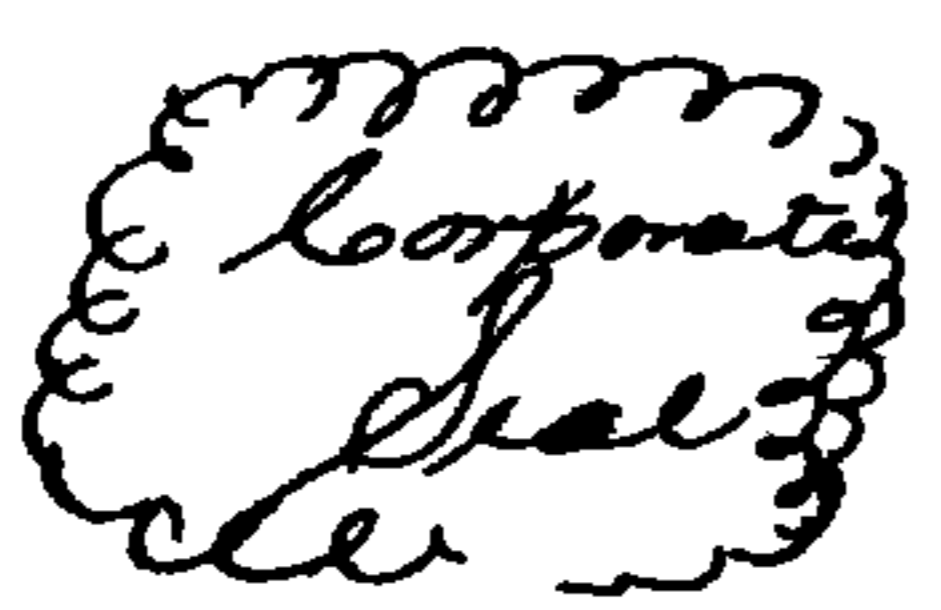 Corporate
Seal